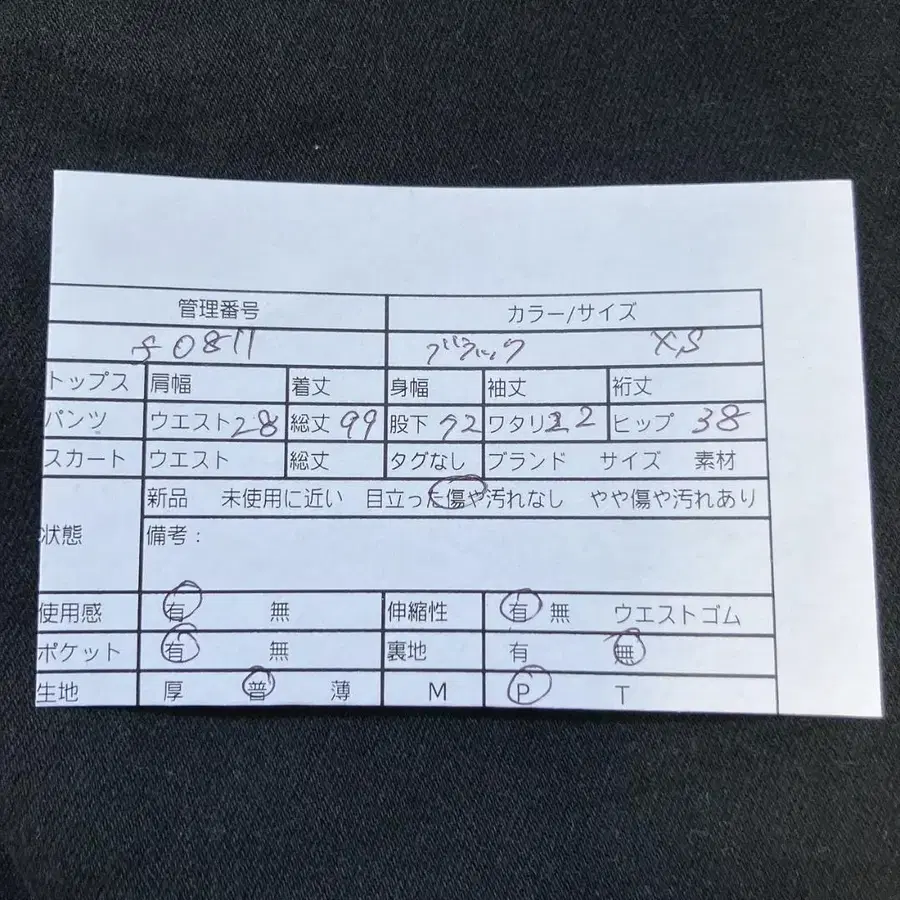 管理番号 カラー/サイズ
f0811 ブラック XS
トップス 肩幅 着丈 身幅 袖丈 裄丈
パンツ ウエスト28 総丈99 股下72 ワタリ22 ヒップ38
スカート ウエスト 総丈 タグなし ブランド サイズ 素材
新品 未使用に近い 目立った傷や汚れなし やや傷や汚れあり
状態 備考：
使用感 有 無 伸縮性 有 無 ウエストゴム
ポケット 有 無 裏地 有 無
生地 厚 普 薄 M P T